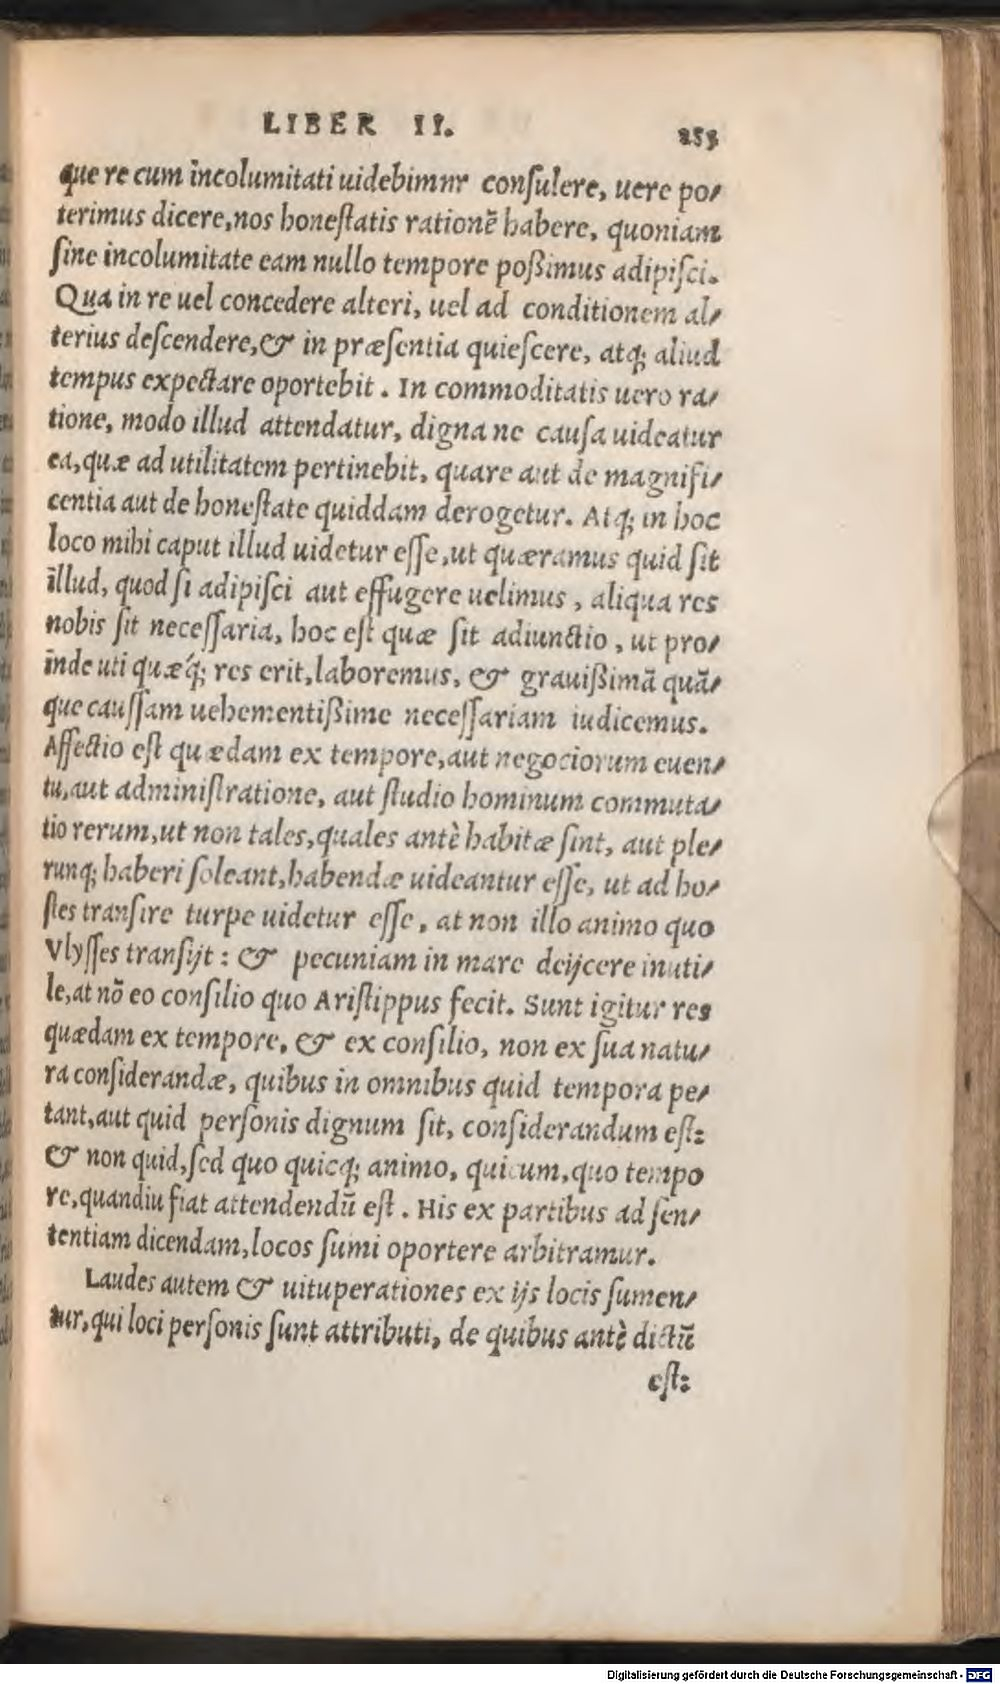 LIBER II. 253
que re cum incolumitati uidebimnr conſulere, uere po⸗
terimus dicere,nos honeſtatis rationẽ habere, quoniam
ſine incolumitate eam nullo tempore poßimus adipiſci.
Qua in re uel concedere alteri, uel ad conditionem al⸗
terius deſcendere,& in præſentia quieſcere, atq; aliud
tempus expectare oportebit. In commoditatis uero ra⸗
tione, modo illud attendatur, digna ne cauſa uideatur
ea,quæ ad utilitatem pertinebit, quare aut de magnifi⸗
centia aut de honeſtate quiddam derogetur. Atq; in hoc
loco mihi caput illud uidetur eſſe,ut quæramus quid ſit
illud, quod ſi adipiſci aut effugere uelimus, aliqua res
nobis ſit neceſſaria, hoc eſt quæ ſit adiunctio, ut pro⸗
inde uti quæq́; res erit,laboremus, & grauißimã quã⸗
que cauſſam uehementißime neceſſariam iudicemus.
Affectio eſt quædam ex tempore,aut negociorum euen⸗
tu,aut adminiſtratione, aut ſtudio hominum commuta⸗
tio rerum,ut non tales,quales antè habitæ ſint, aut ple⸗
runq; haberi ſoleant,habendæ uideantur eſſe, ut ad ho⸗
ſtes tranſire turpe uidetur eſſe, at non illo animo quo
Vlyſſes tranſijt: & pecuniam in mare deijcere inuti⸗
le,at nõ eo conſilio quo Ariſtippus fecit. Sunt igitur res
quædam ex tempore, & ex conſilio, non ex ſua natu⸗
ra conſiderandæ, quibus in omnibus quid tempora pe⸗
tant,aut quid perſonis dignum ſit, conſiderandum eſt:
& non quid,ſed quo quicq; animo, quicum,quo tempo
re,quandiu fiat attendendũ eſt. His ex partibus ad ſen⸗
tentiam dicendam,locos ſumi oportere arbitramur.
Laudes autem & uituperationes ex ijs locis ſumen⸗
tur,qui loci perſonis ſunt attributi, de quibus antè dictũ
eſt:
Digitalisierung gefördert durch die Deutsche Forschungsgemeinschaft - DFG